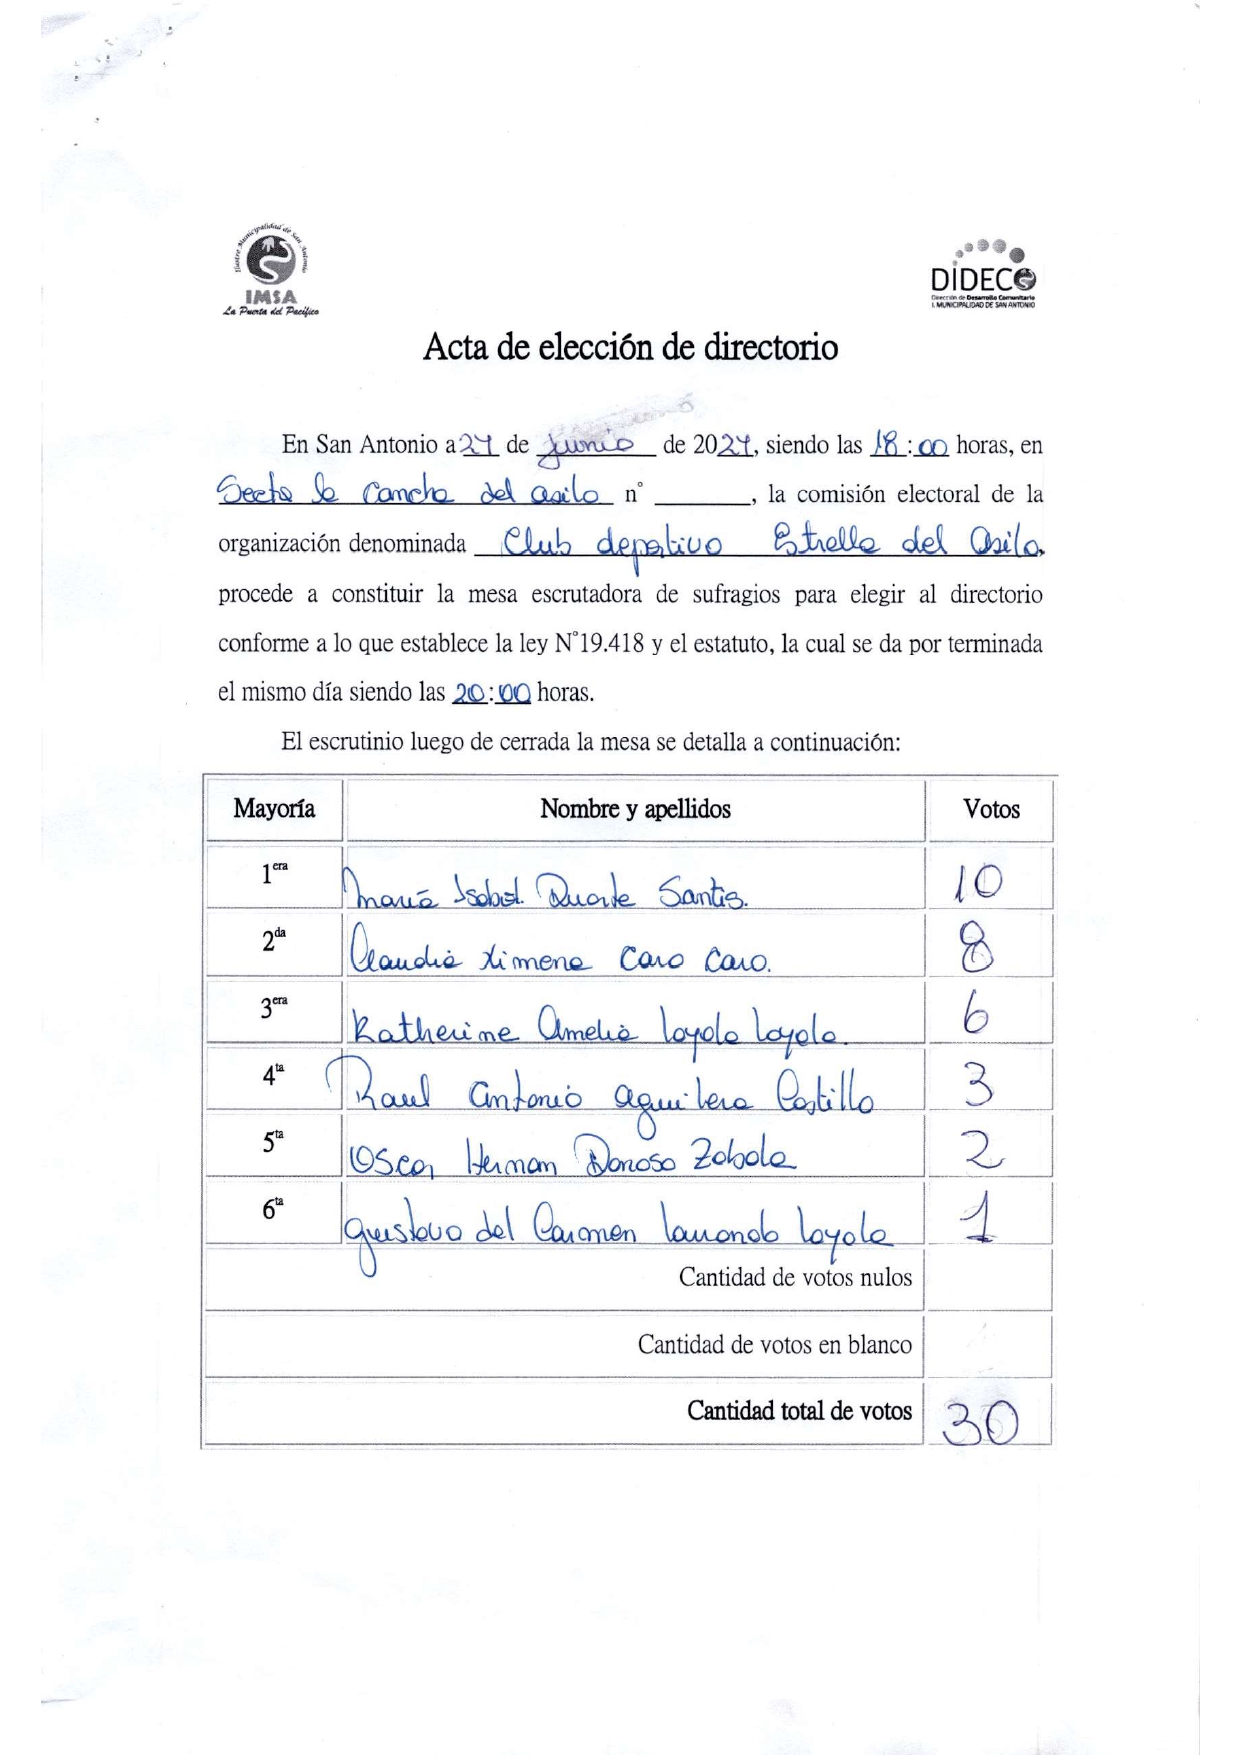 Ilustre Municipalidad de San Antonio
IMSA
La Puerta del Pacífico
DIDECO
Dirección de Desarrollo Comunitario
I. MUNICIPALIDAD DE SAN ANTONIO
Acta de elección de directorio
En San Antonio a 24 de Junio de 2024, siendo las 18:00 horas, en
la cancha del asilo n° , la comisión electoral de la
organización denominada Club deportivo Estrella del Asilo,
procede a constituir la mesa escrutadora de sufragios para elegir al directorio
conforme a lo que establece la ley N°19.418 y el estatuto, la cual se da por terminada
el mismo día siendo las 20:00 horas.
El escrutinio luego de cerrada la mesa se detalla a continuación:
Mayoría Nombre y apellidos Votos
1era María Isabel. Duarte Santis. 10
2da Claudia Ximena Caro Caro. 8
3era Katherine Amelia Loyola Loyola. 6
4ta Raul Antonio Aguilera Castillo 3
5ta Oscar Hernan Donoso Zabala 2
6ta Gustavo del Carmen Larrondo Loyola 1
Cantidad de votos nulos
Cantidad de votos en blanco
Cantidad total de votos 30